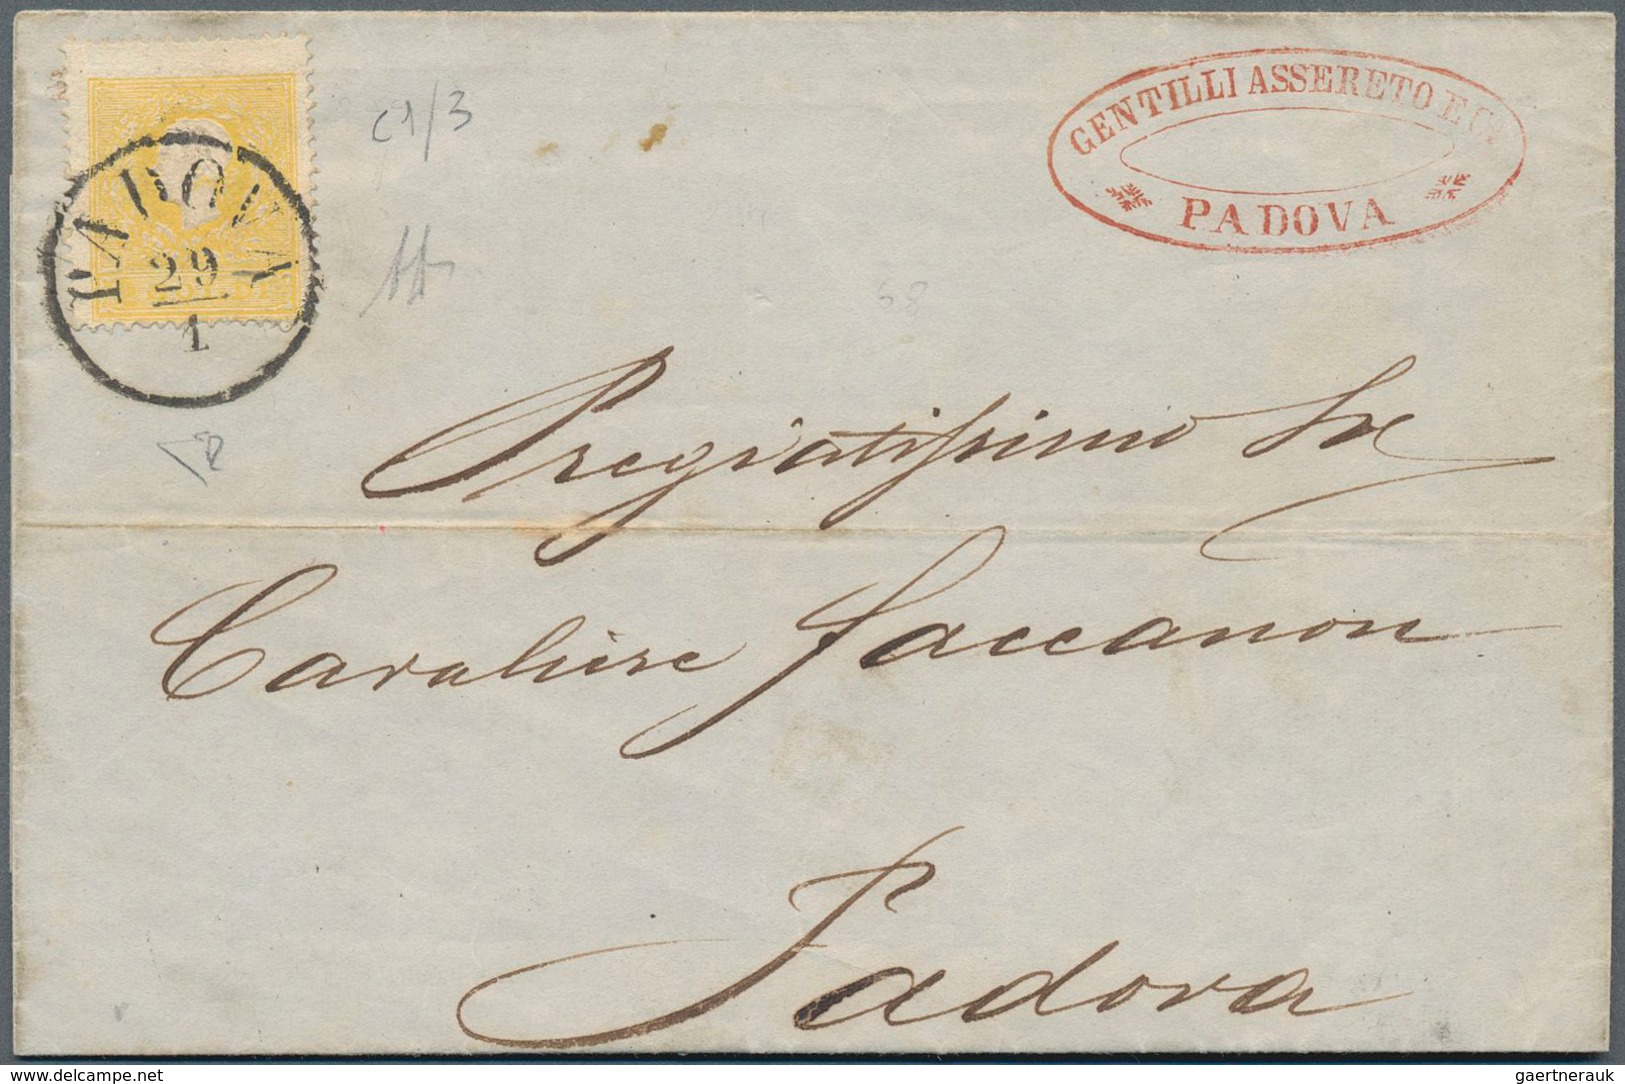 GENTILLI ASSERETO E Co.
PADOVA
c1/3
PADOVA
29
1
Pregiatissimo Sre
Cavaliere Jaccanon
Padova
www.delcampe.net
gaertnerauk